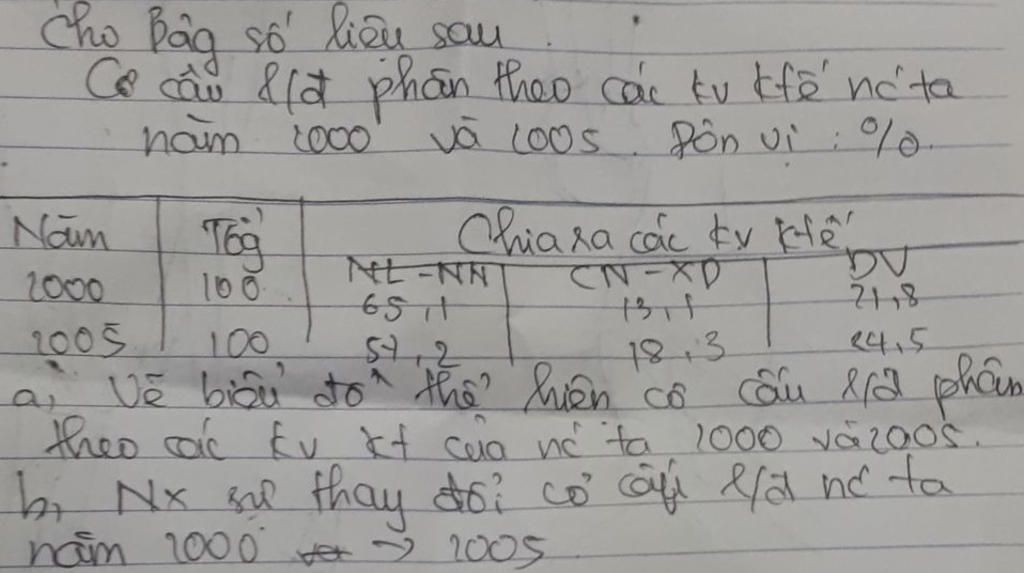 Cho Bảg số liệu sau
Cơ cấu l/đ phân theo các kv ktế nc' ta
năm 2000 và 2005. Đơn vị : %.
Năm Tổg Chia ra các kv ktế
NL-NN CN-XD DV
2000 100 65,1 13,1 21,8
2005 100 57,2 18,3 24,5
a, Vẽ biểu đồ thể hiện cơ cấu l/đ phân
theo các kv kt của nc' ta 2000 và 2005.
b, Nx sự thay đổi cơ cấu l/đ nc' ta
năm 2000 → 2005